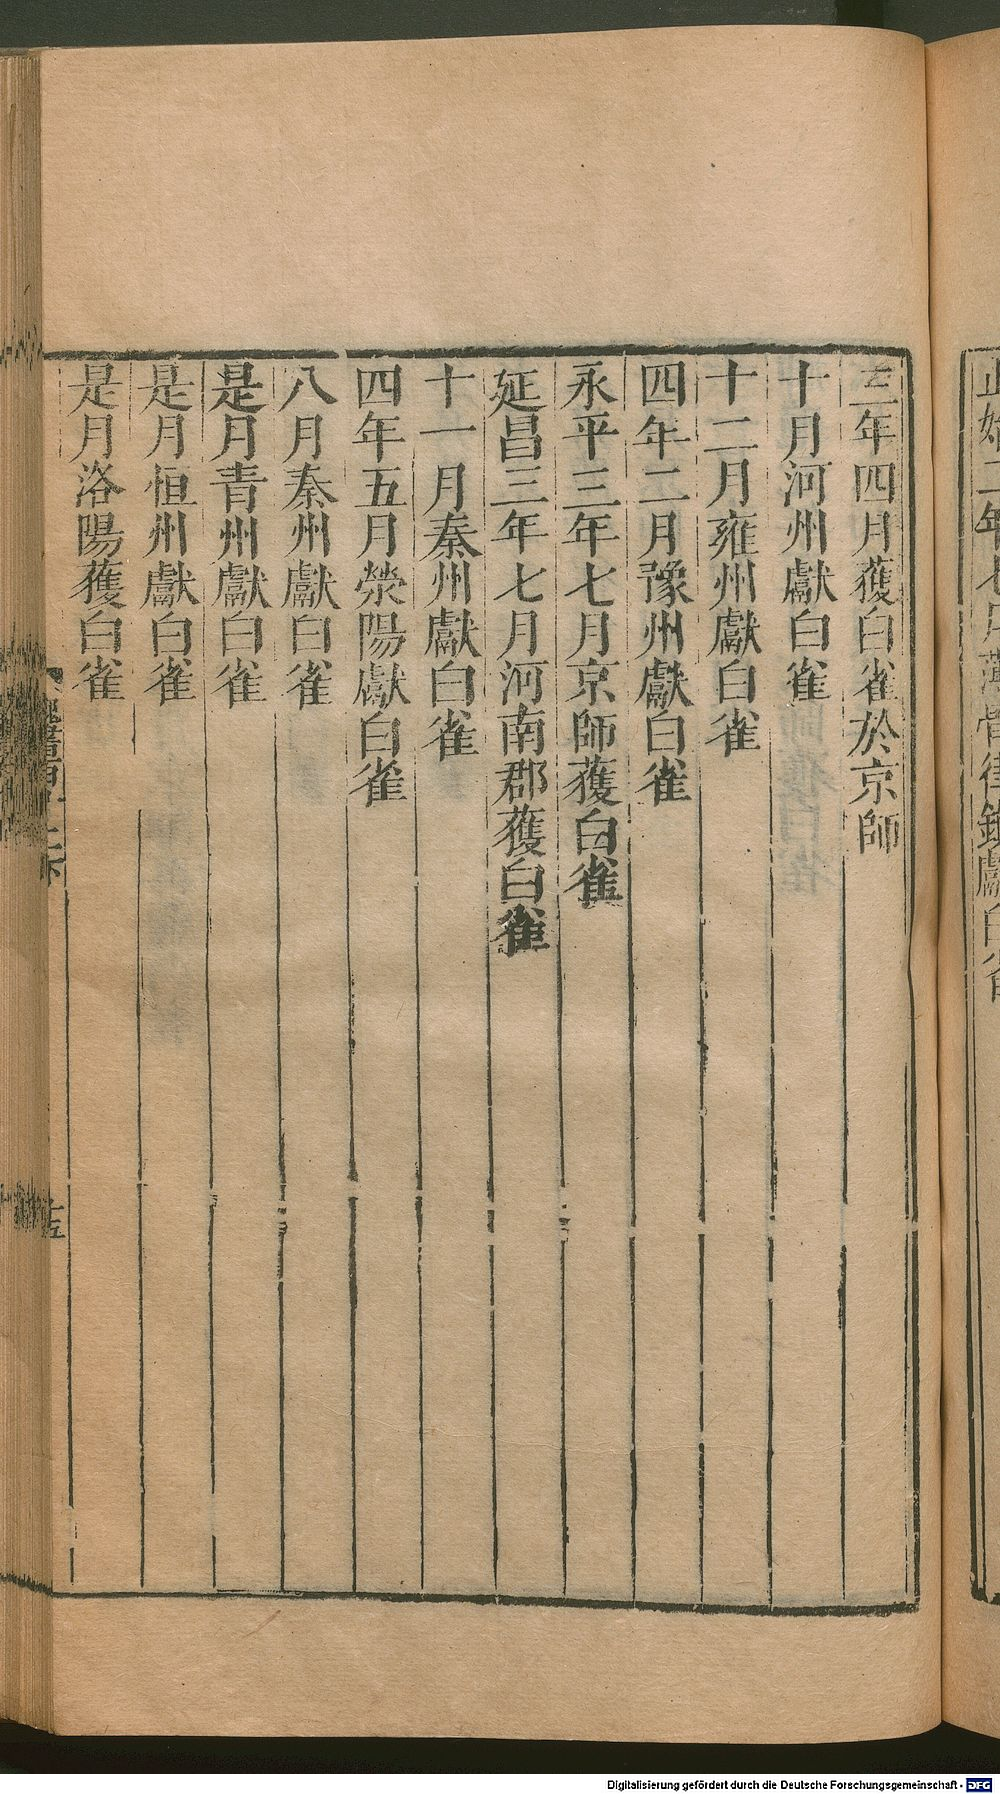 三年四月獲白雀於京師
十月河州獻白雀
十二月雍州獻白雀
四年二月豫州獻白雀
永平三年七月京師獲白雀
延昌三年七月河南郡獲白雀
十一月秦州獻白雀
四年五月滎陽獻白雀
八月秦州獻白雀
是月青州獻白雀
是月恒州獻白雀
是月洛陽獲白雀
十五
Digitalisierung gefördert durch die Deutsche Forschungsgemeinschaft - DFG